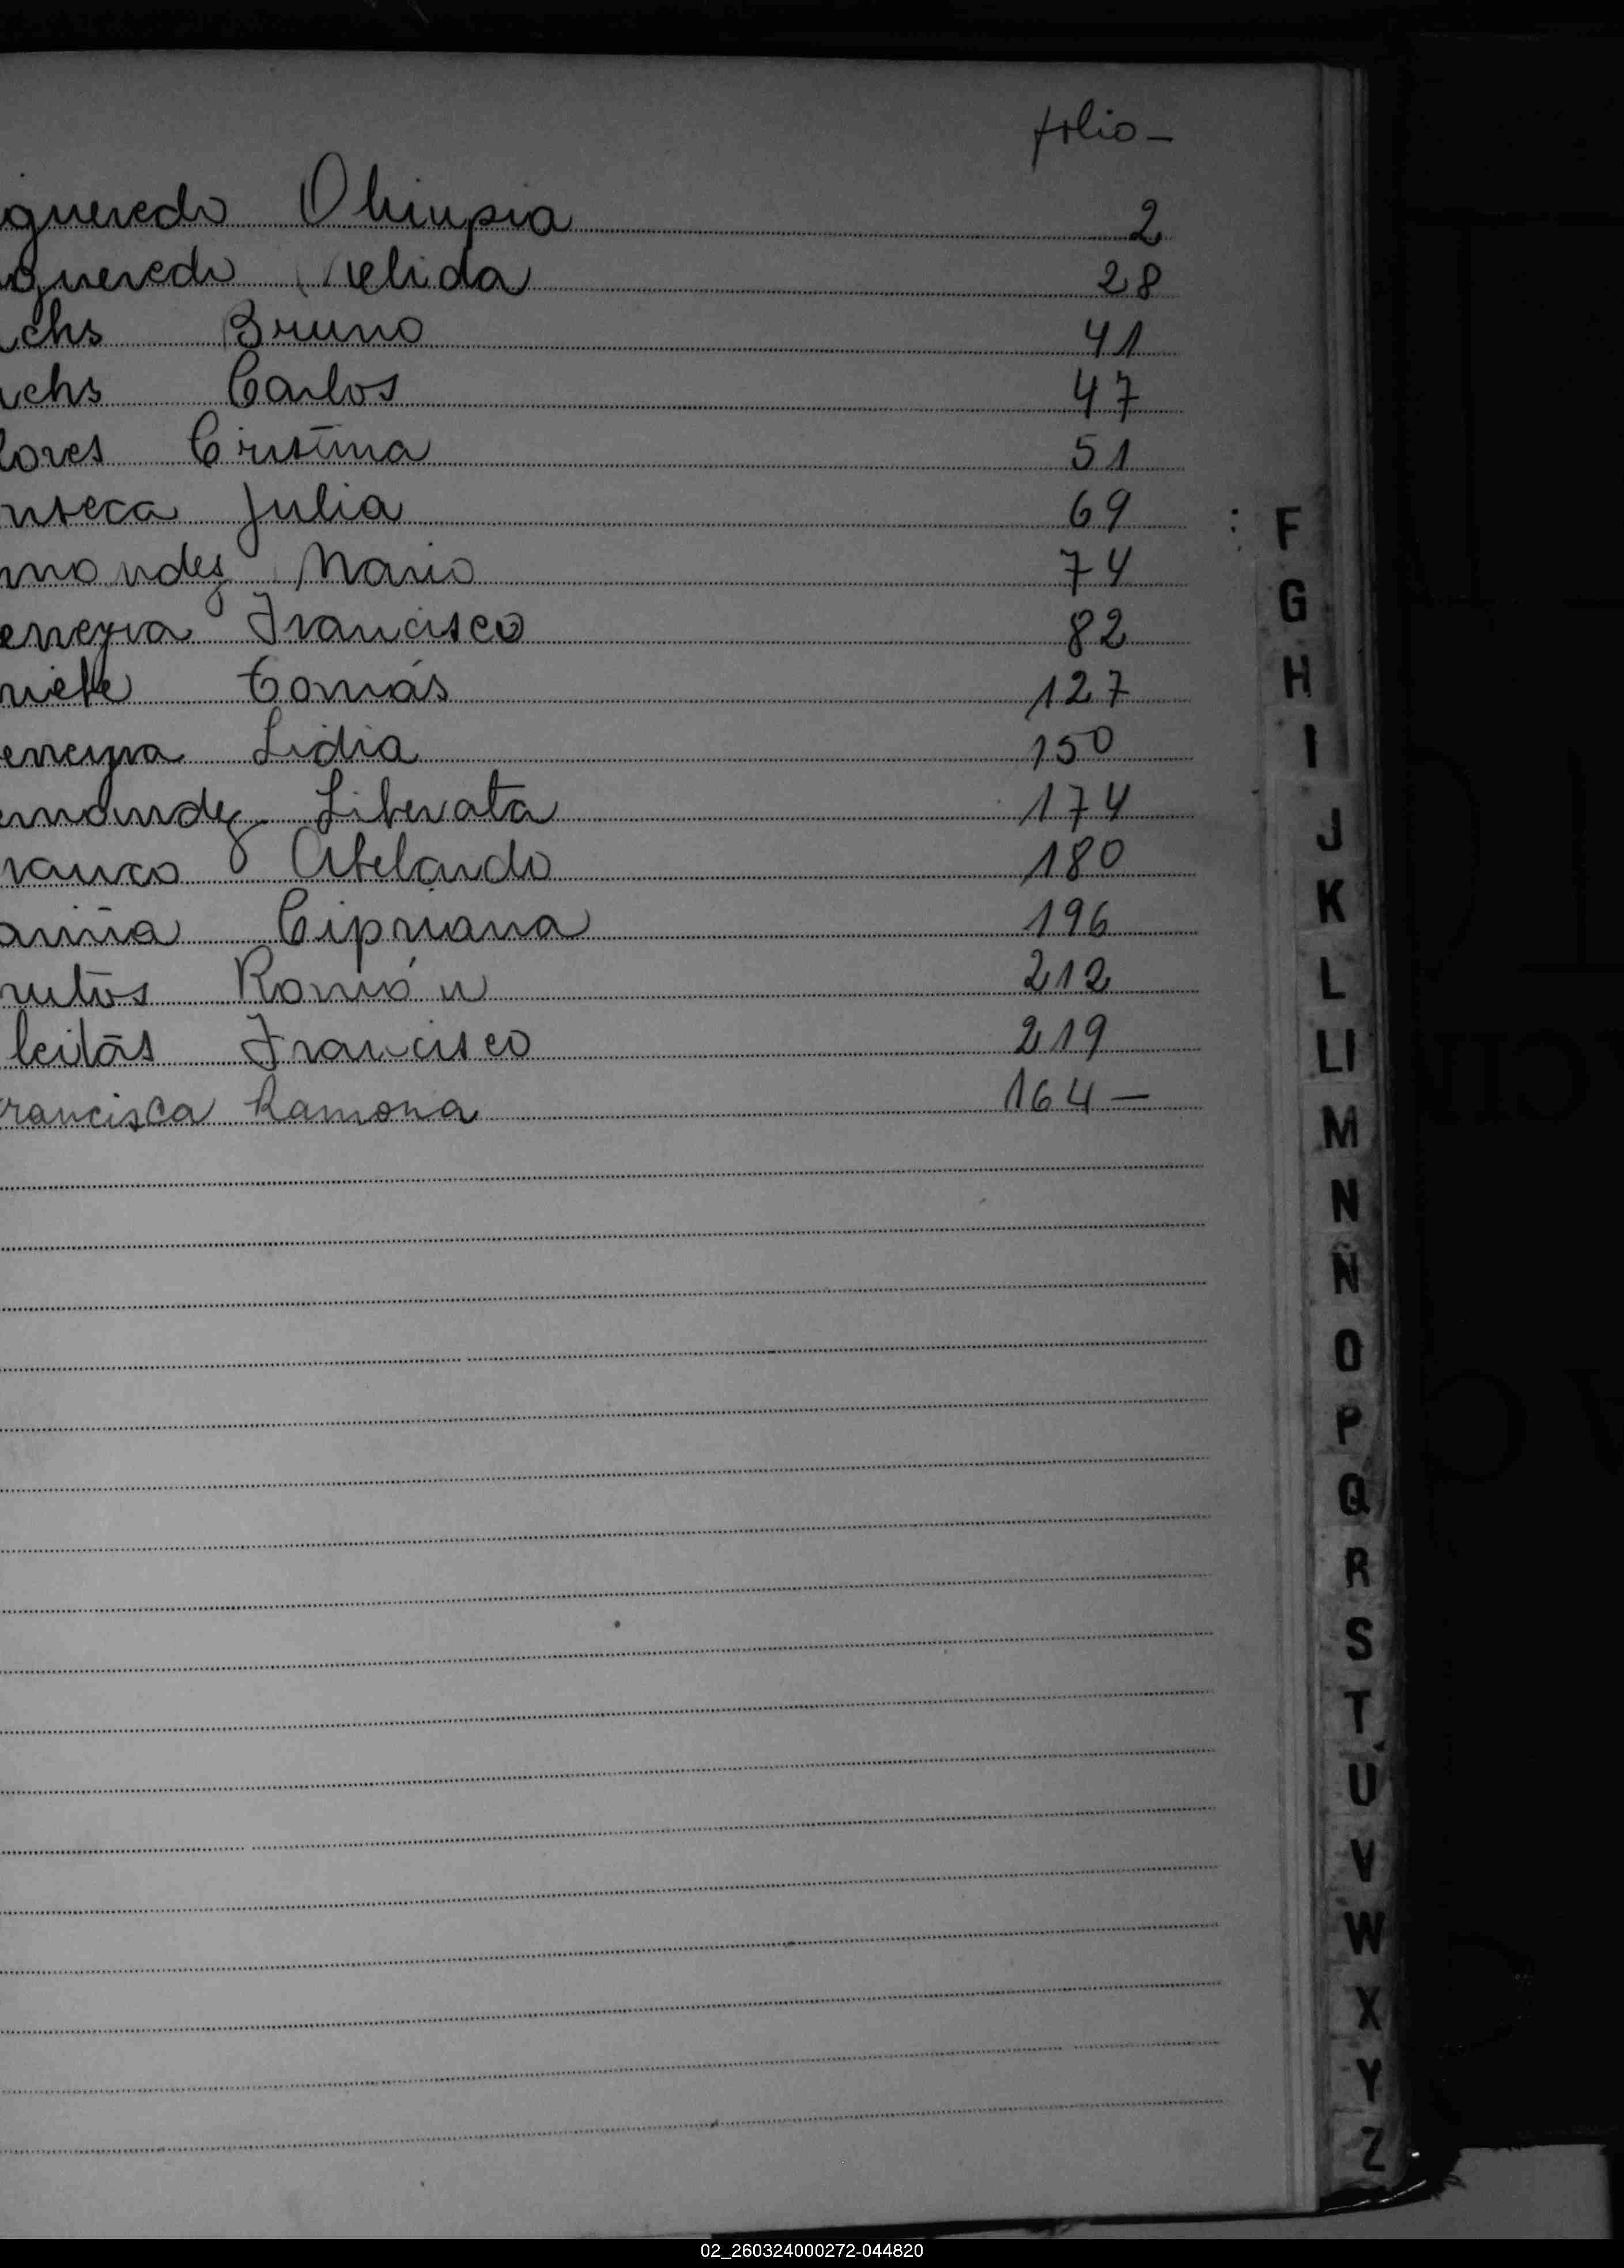 folio-
gueredo Olimpia 2
gueredo Nelida 28
uchs Bruno 41
uchs Carlos 47
lores Cristina 51
onseca Julia 69
rnandez Mario 74
erreyra Francisco 82
Tomás 127
erreyra Lidia 150
ernandez Liberata 174
ranco Abelardo 180
ariña Cipriana 196
rutos Román 212
leitas Francisco 219
rancisca Ramona 164-
: F
G
H
I
J
K
L
Ll
M
N
Ñ
O
P
Q
R
S
T
U
V
W
X
Y
Z
02_260324000272-044820